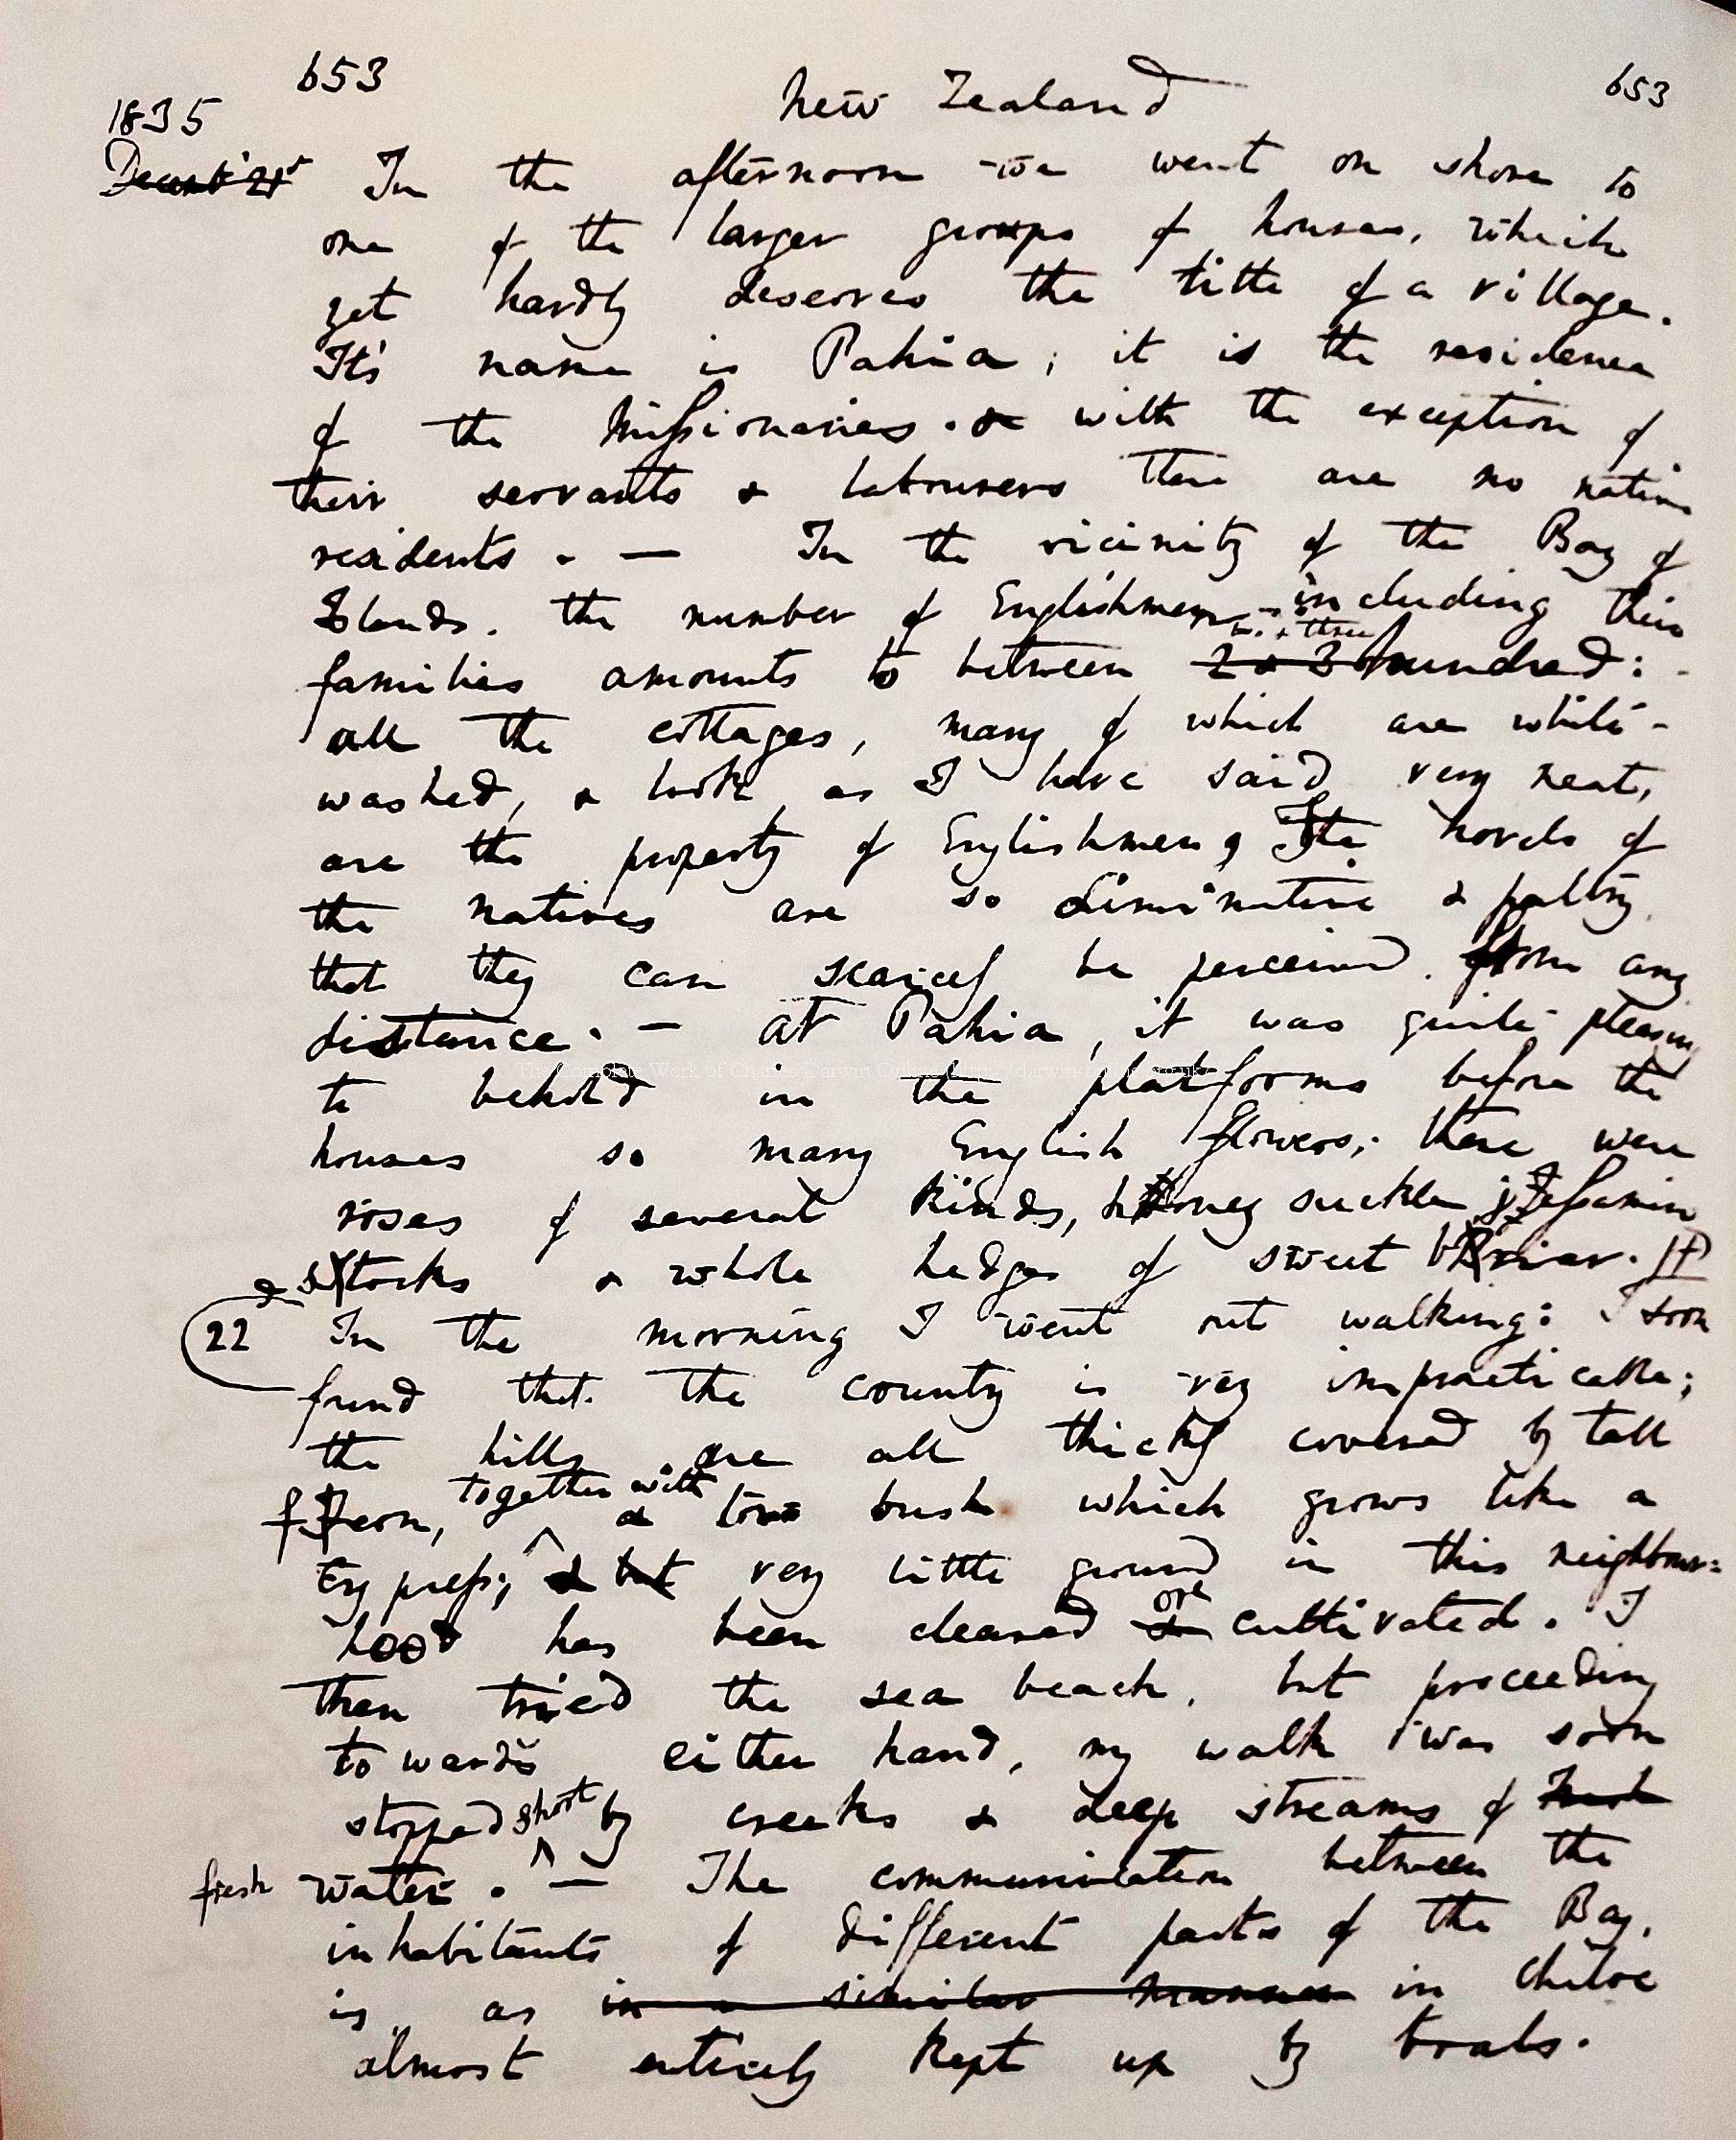 653 New Zealand 653
1835
Decemb. 21st In the afternoon we went on shore to
one of the larger groups of houses, which
yet hardly deserves the title of a village.
It's name is Pahia; it is the residence
of the Missionaries. & with the exception of
their servants & labourers there are no native
residents. — In the vicinity of the Bay of
Islands. the number of Englishmen including their
two & three
families amounts to between 2 & 3 hundred:
all the cottages, many of which are white-
washed, & look as I have said very neat,
are the property of Englishmen, The hovels of
the natives are so diminutive & paltry
that they can scarcely be perceived from any
distance. — At Pahia, it was quite pleasing
to behold in the platforms before the
houses so many English flowers; there were
roses of several kinds, honey suckle, jessamine
& stocks & whole hedges of sweet briar.
22 In the morning I went out walking: I soon
found that the country is very impracticable;
the hills are all thickly covered by tall
together with
fern, a low bush which grows like a
Cypress; & but very little ground in this neighbour=
hood has been cleared & or cultivated. I
then tried the sea beach, but proceeding
towards either hand, my walk was soon
stopped short by creeks & deep streams of fresh
fresh water. — The communication between the
inhabitants of different parts of the Bay,
is, as in a similar manner in Chiloe
almost entirely kept up by boats.